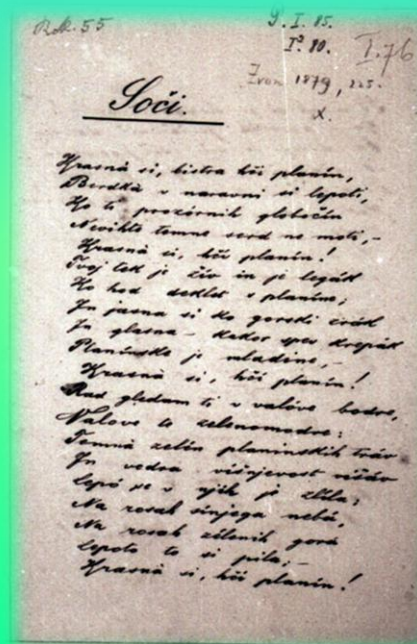 Rok. 55
P. I. 85.
I² 80.
I. 76
Zvon 1879, 225.
X.
Soči.
Krasná si, bistra hči planin,
Brdká v naravni si lepoti,
Ko ti prozórnih globočin
Nevihte temne srd ne moti, –
Krasná si, hči planin!
Tvoj tek je živ in je legák
Ko hod deklet s planine;
In jasna si ko gorski zrák
In glasna – kakor spev krepák
Planinske je mladine, –
Krasná si, hči planin!
Rad gledam ti v valóve bodre,
Valove te zelenomodre:
Temná zelen planinskih tráv
In vedra višnjevost višáv
Lepó se v njih je zlila;
Na rosah sinjega nebá,
Na rosah zélenih gorá
Lepoto to si pila, –
Krasná si, hči planin!